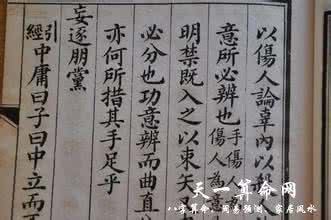 以傷人論辜內以殺
意所必辨也手傷人
傷人為意
明禁既入之以束矢
必分也功意辨而曲直
亦何所措其手足乎
妄逐朋黨
引經中庸曰子曰中立而
天一算命网
八字算命、周易预测、家居风水